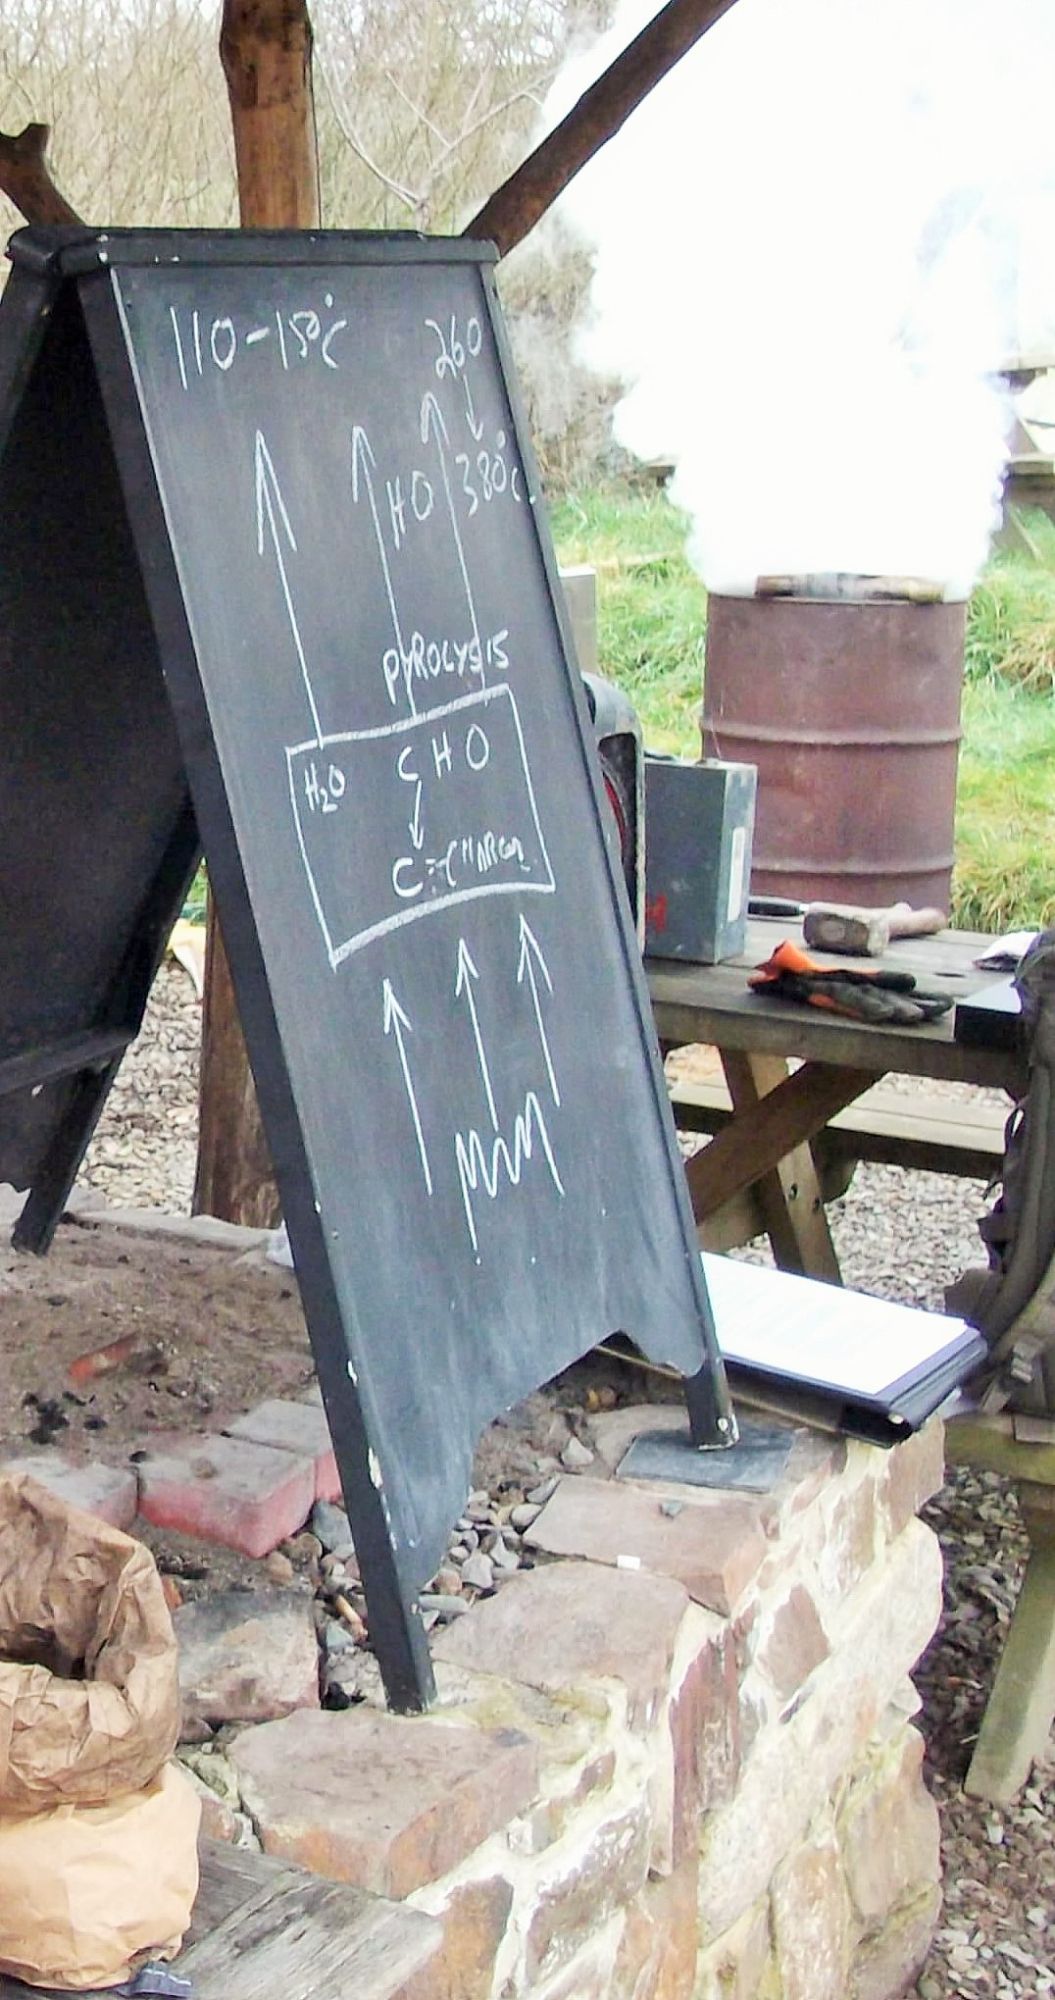 110-150°C
260
380°C
H O
PYROLYSIS
H₂O
C H O
C = CHARCOAL